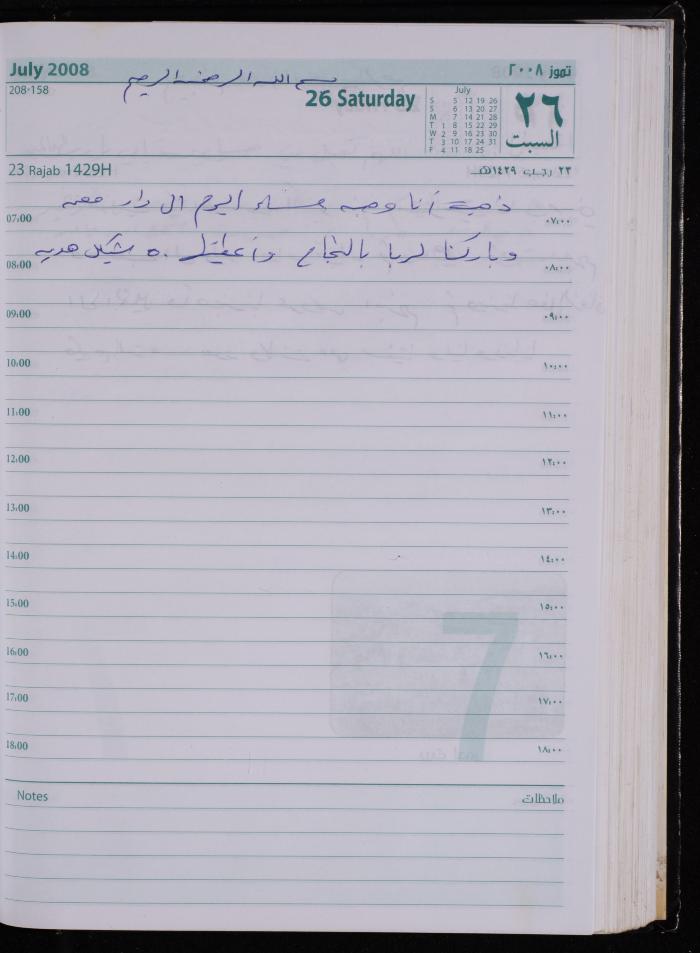 July 2008 تموز ٢٠٠٨
بسم الله الرحمن الرحيم
208-158
26 Saturday
July
S 5 12 19 26
S 6 13 20 27
M 7 14 21 28
T 1 8 15 22 29
W 2 9 16 23 30
T 3 10 17 24 31
F 4 11 18 25
٢٦
السبت
23 Rajab 1429H ٢٣ رجب ١٤٢٩هـ
ذهبت أنا وجيه مساء اليوم الى دار معن
07:00 ٠٧:٠٠
وباركنا لربا بالنجاح وأعطيتها ٥٠ شيكل هديه
08:00 ٠٨:٠٠
09:00 ٠٩:٠٠
10:00 ١٠:٠٠
11:00 ١١:٠٠
12:00 ١٢:٠٠
13:00 ١٣:٠٠
14:00 ١٤:٠٠
15:00 ١٥:٠٠
16:00 ١٦:٠٠
17:00 ١٧:٠٠
18:00 ١٨:٠٠
7
Notes ملاحظات